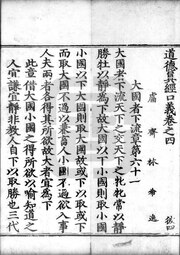 道德真經口義卷之四
鬳齋林希逸
大國者下流章第六十一
大國者下流天下之交天下之牝牝常以靜
勝牡以靜為下故大國以下小國則取小國
小國以下大國則取大國故或下以取或下
而取大國不過欲兼畜人小國不過欲入事
人夫兩者各得其所欲故大者宜為下
此章借大國小國之得所欲以喻知道之
人宜謙宜靜非教人自下以取勝也三代